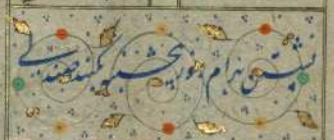 نشستن بهرام روز پنجشنبه بگنبد صندلی